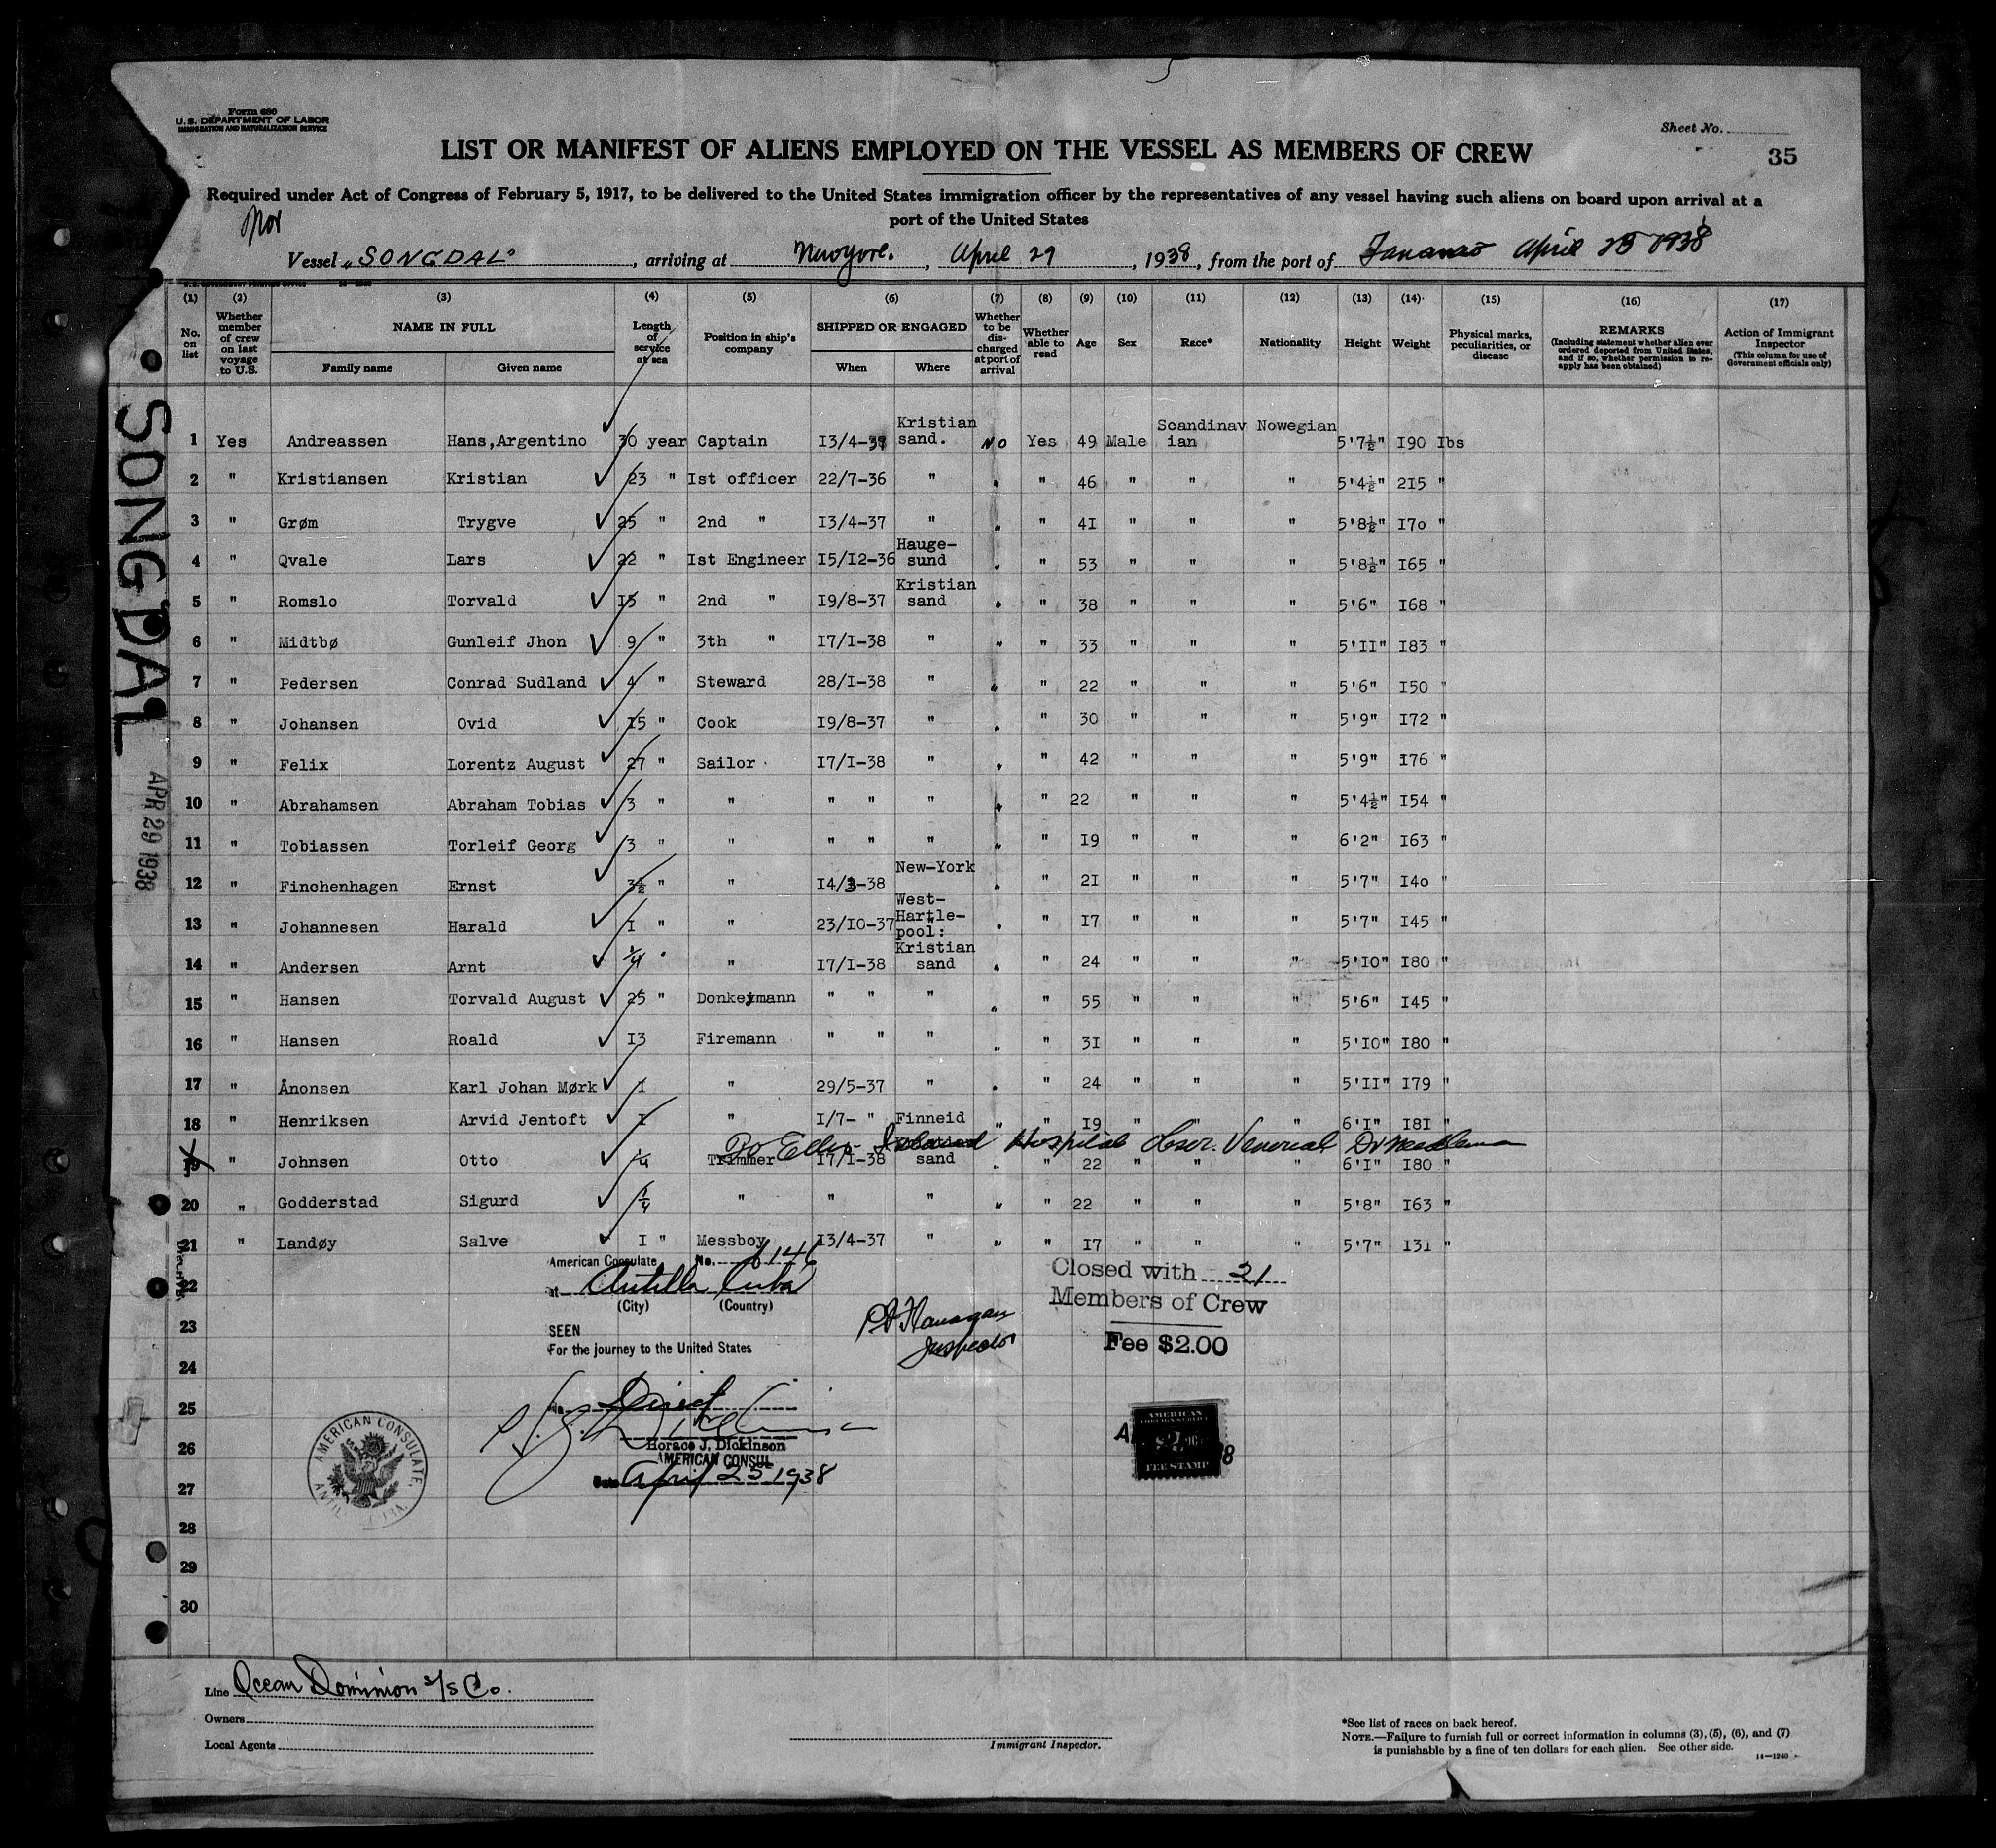 Form 680
U. S. DEPARTMENT OF LABOR
IMMIGRATION AND NATURALIZATION SERVICE
Sheet No.
35
LIST OR MANIFEST OF ALIENS EMPLOYED ON THE VESSEL AS MEMBERS OF CREW
Required under Act of Congress of February 5, 1917, to be delivered to the United States immigration officer by the representatives of any vessel having such aliens on board upon arrival at a
port of the United States
Nor
Vessel "SONGDAL", arriving at Newyork, April 29, 1938, from the port of Tanamo April 25 1938
(1) (2) (3) (4) (5) (6) (7) (8) (9) (10) (11) (12) (13) (14) (15) (16) (17)
No. on list
Whether member of crew on last voyage to U.S.
NAME IN FULL
Family name Given name
Length of service at sea
Position in ship's company
SHIPPED OR ENGAGED
When Where
Whether to be discharged at port of arrival
Whether able to read
Age
Sex
Race*
Nationality
Height
Weight
Physical marks, peculiarities, or disease
REMARKS
(Including statement whether alien ever ordered deported from United States, and if so, whether permission to reapply has been obtained)
Action of Immigrant Inspector
(This column for use of Government officials only)
1 Yes Andreassen Hans,Argentino 30 year Captain I3/4-38 Kristian sand. No Yes 49 Male Scandinav ian Nowegian 5'7½" I90 Ibs
2 " Kristiansen Kristian 23 " Ist officer 22/7-36 " " " 46 " " " 5'4½" 2I5 "
3 " Grøm Trygve 25 " 2nd " I3/4-37 " " " 4I " " " 5'8½" I7o "
4 " Qvale Lars 22 " Ist Engineer I5/I2-36 Hauge- sund " " 53 " " " 5'8½" I65 "
5 " Romslo Torvald I5 " 2nd " I9/8-37 Kristian sand " " 38 " " " 5'6" I68 "
6 " Midtbø Gunleif Jhon 9 " 3th " I7/I-38 " " " 33 " " " 5'II" I83 "
7 " Pedersen Conrad Sudland 4 " Steward 28/I-38 " " " 22 " " " 5'6" I50 "
8 " Johansen Ovid I5 " Cook I9/8-37 " " " 30 " " " 5'9" I72 "
9 " Felix Lorentz August 27 " Sailor I7/I-38 " " " 42 " " " 5'9" I76 "
10 " Abrahamsen Abraham Tobias 3 " " " " " " " 22 " " " 5'4½" I54 "
11 " Tobiassen Torleif Georg 3 " " " " " " " I9 " " " 6'2" I63 "
12 " Finchenhagen Ernst 3½ " " I4/3-38 New-York " " 2I " " " 5'7" I4o "
13 " Johannesen Harald I " " 23/I0-37 West- Hartle- pool: " " I7 " " " 5'7" I45 "
14 " Andersen Arnt ¼ " " I7/I-38 Kristian sand " " 24 " " " 5'I0" I80 "
15 " Hansen Torvald August 25 " Donkeymann " " " " " 55 " " " 5'6" I45 "
16 " Hansen Roald I3 Firemann " " " " " 3I " " " 5'I0" I80 "
17 " Ånonsen Karl Johan Mørk I " 29/5-37 " " " 24 " " " 5'II" I79 "
18 " Henriksen Arvid Jentoft I " I/7- " Finneid " " I9 " " " 6'I" I8I "
To Ellis Island Hospital Obser. Venereal Dr
19 " Johnsen Otto ¼ Trimmer I7/I-38 sand " " 22 " " " 6'I" I80 "
20 " Godderstad Sigurd ¼ " " " " " 22 " " " 5'8" I63 "
21 " Landøy Salve I " Messboy I3/4-37 " " " I7 " " " 5'7" I3I "
22
23
24
25
26
27
28
29
30
SONGDAL
APR 29 1938
American Consulate No.
at Antilla Cuba
(City) (Country)
SEEN
For the journey to the United States
Direct
Horace J. Dickinson
AMERICAN CONSUL
Date April 25 1938
AMERICAN CONSULATE,
Flanagan
Inspector
Closed with 21
Members of Crew
Fee $2.00
AMERICAN
FOREIGN SERVICE
$2
FEE STAMP
Line Ocean Dominion S/S Co.
Owners
Local Agents
Immigrant Inspector.
*See list of races on back hereof.
NOTE.—Failure to furnish full or correct information in columns (3), (5), (6), and (7)
is punishable by a fine of ten dollars for each alien. See other side.
14—1240